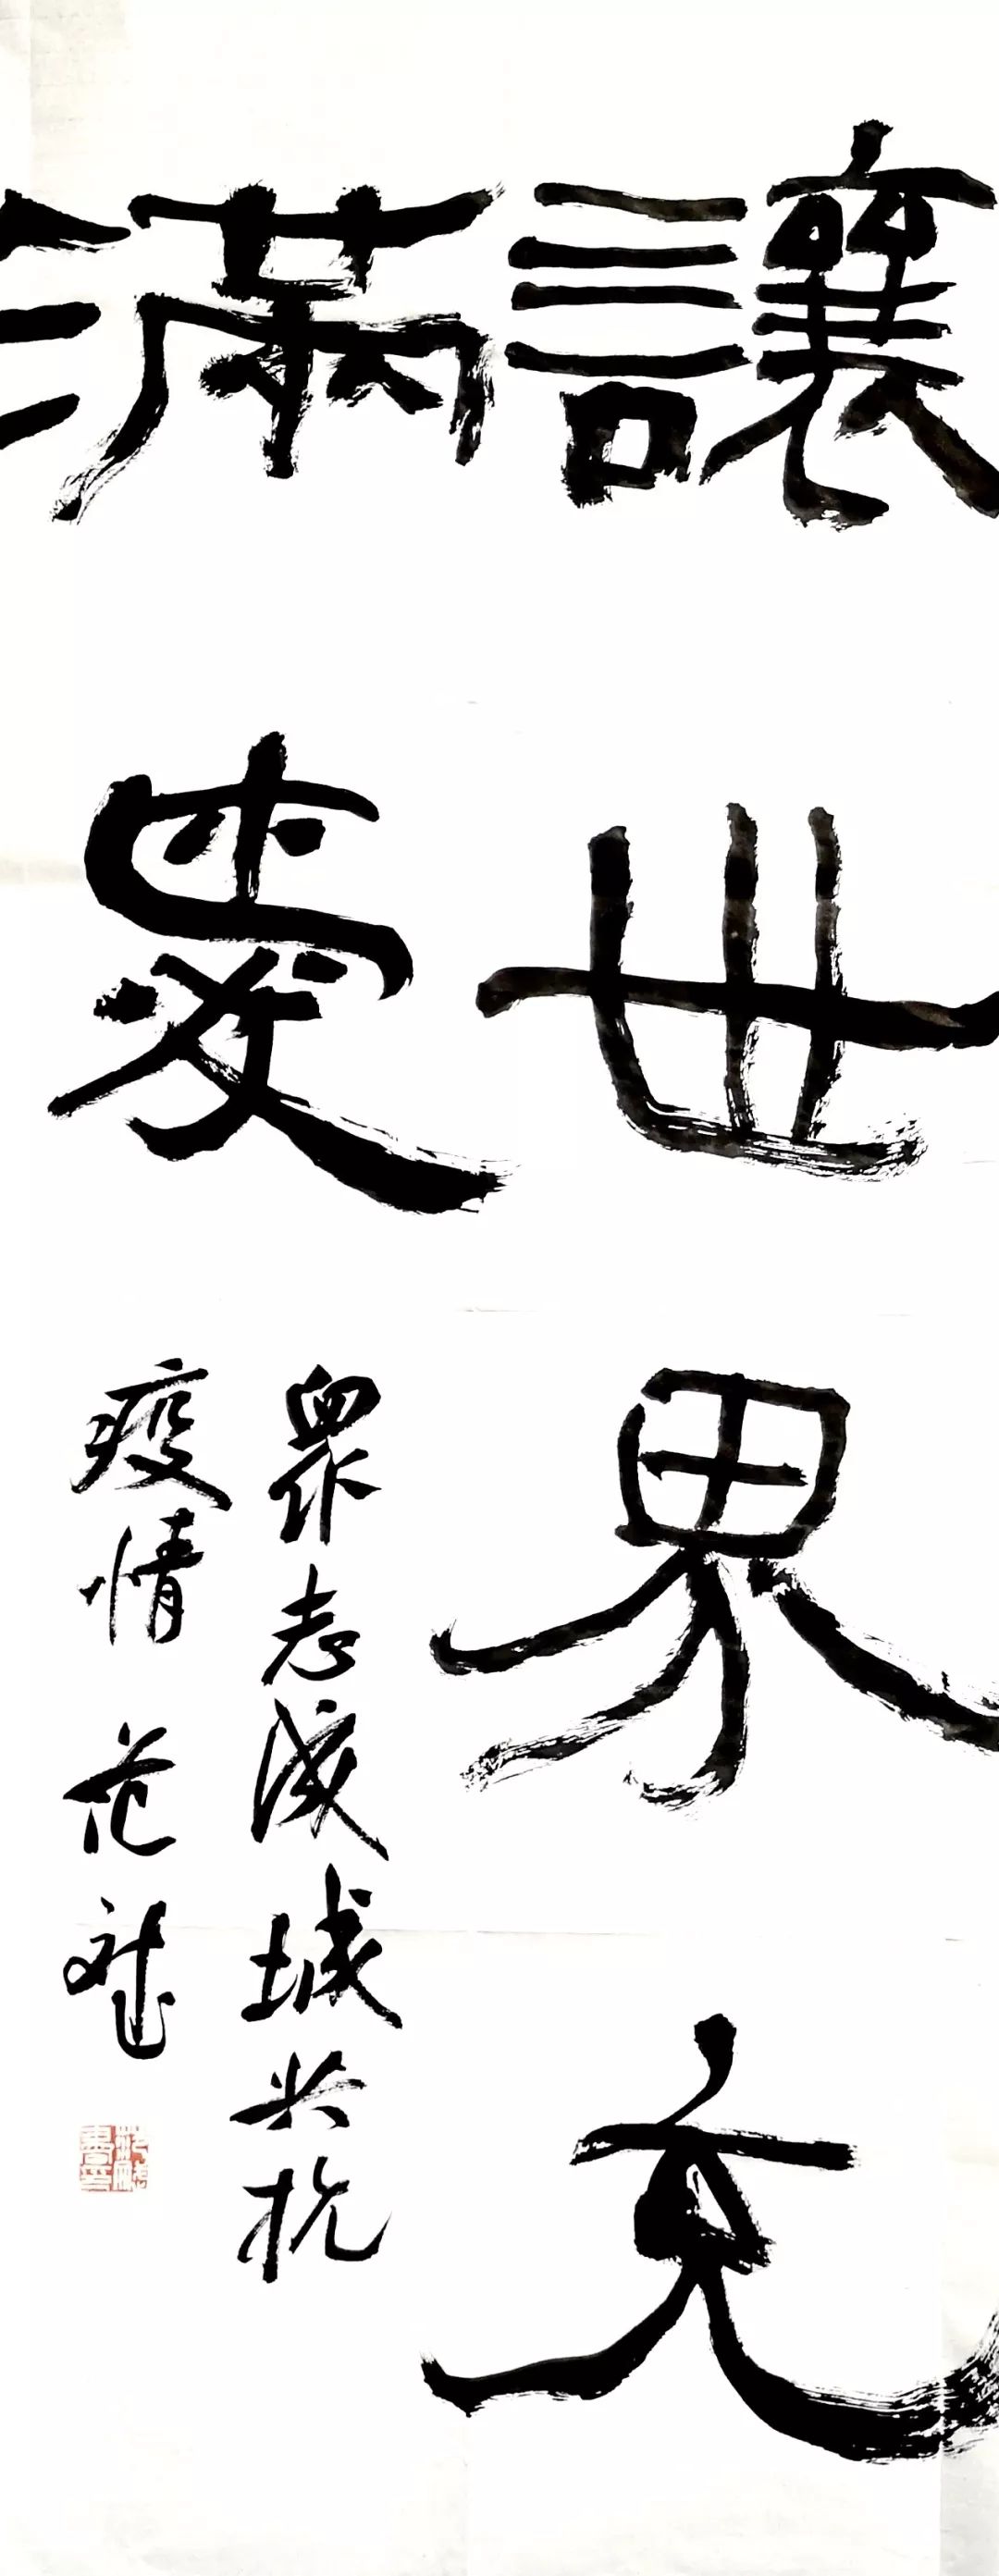 讓世界充
滿愛
眾志成城共抗
疫情 范斌